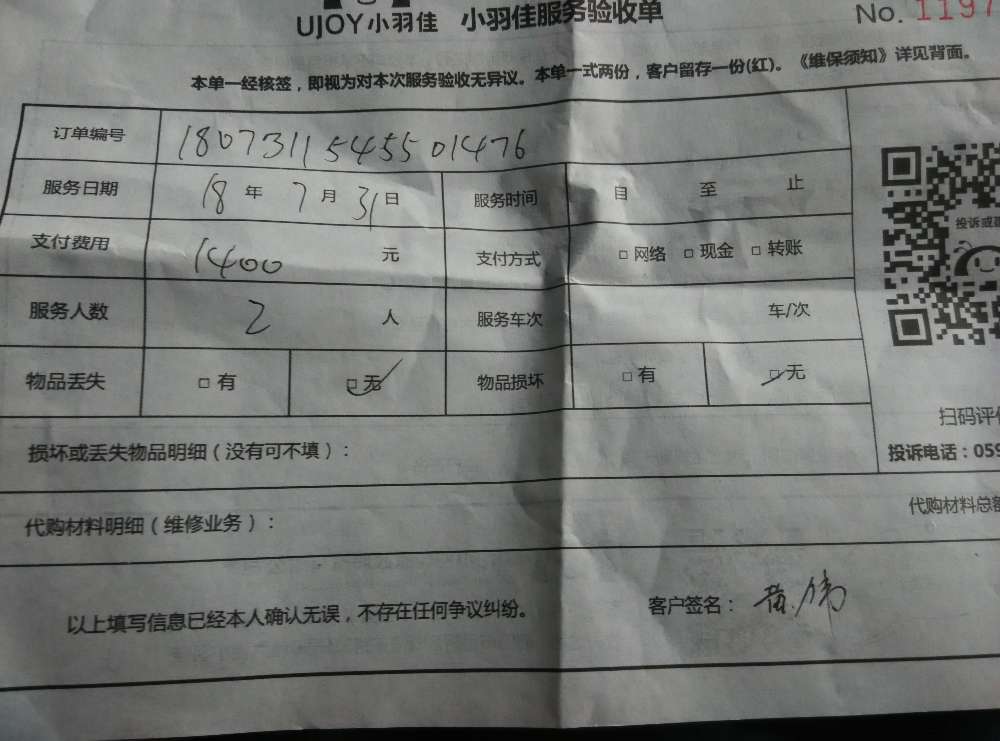 UJOY小羽佳 小羽佳服务验收单 No. 1197
本单一经核签，即视为对本次服务验收无异议。本单一式两份，客户留存一份(红)。《维保须知》详见背面。
订单编号 1807311545501476
服务日期 18年 7月 31日 服务时间 自 至 止
支付费用 1400 元 支付方式 □网络 □现金 □转账
服务人数 2 人 服务车次 车/次
物品丢失 □有 □无 物品损坏 □有 □无
投诉或
扫码评
损坏或丢失物品明细（没有可不填）：
投诉电话：059
代购材料明细（维修业务）：
代购材料总额
以上填写信息已经本人确认无误，不存在任何争议纠纷。
客户签名：